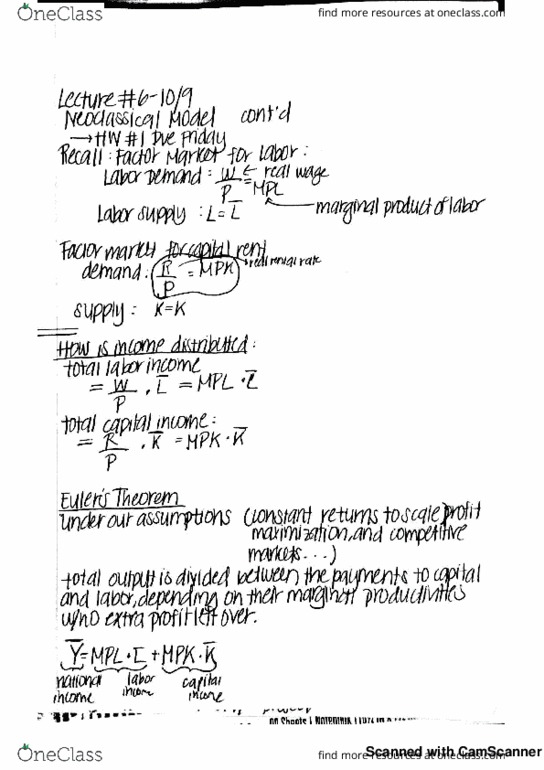 OneClass
find more resources at oneclass.com
Lecture #6-10/9
Neoclassical Model cont'd
→ HW #1 Due Friday
Recall: Factor Market for Labor:
Labor Demand: W/P ← real wage = MPL
Labor supply: L = L̅
marginal product of labor
Factor market for capital rent
demand: R/P = MPK → real rental rate
supply: K = K
How is income distributed:
total labor income
= W/P · L̅ = MPL · L̅
total capital income:
= R/P · K̅ = MPK · K̅
Euler's Theorem
under our assumptions (constant returns to scale, profit
maximization, and competitive
markets...)
total output is divided between the payments to capital
and labor, depending on their marginal productivities
w/no extra profit left over.
Y̅ = MPL · L̅ + MPK · K̅
national income
labor income
capital income
Scanned with CamScanner
OneClass
find more resources at oneclass.com